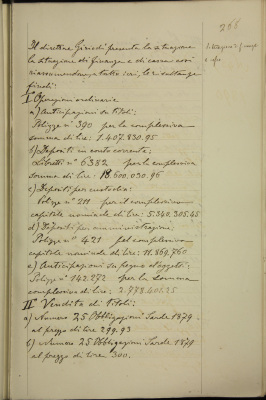 266
Il direttore Girodi presenta la situazione
la situazione di finanza e di cassa
a tutto ieri, le risultanze
I° Operazioni ordinarie
a) Anticipazioni su titoli:
Polizze n° 390 per la complessiva
somma di lire: 1.407.830.95
b) Depositi in conto corrente:
Libretti n° 6382 per la complessiva
somma di lire: 18.600.030.96
c) Depositi per custodia:
Polizze n° 211 per il complessivo
capitale nominale di lire: 5.340.305.45
d) Depositi per amministrazione:
Polizze n° 421 pel complessivo
capitale nominale di lire: 11.869.760
e) Anticipazioni su pegno d'oggetti:
Polizze n° 142.272 per la somma
complessiva di lire: 2.778.405.25
II° Vendita di Titoli:
a) Numero 25 Obbligazioni Sarde 1879
al prezzo di lire 299.93
b) Numero 25 Obbligazioni Sarde 1879
al prezzo di lire 300.